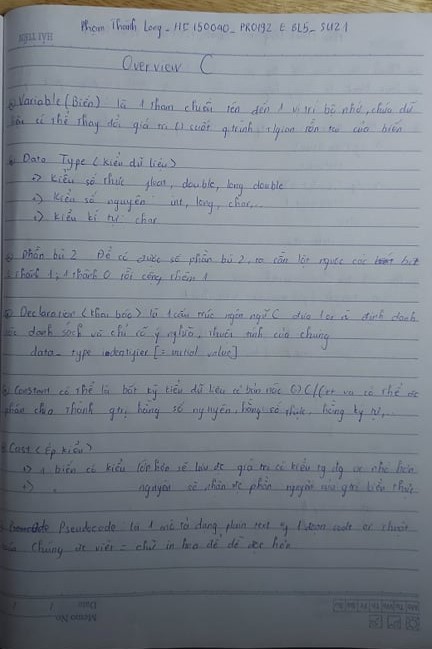 Phạm Thanh Long_HE150040_PRO192 E_BL5_SU21
HẢI TIẾN
Overview C
Variable (Biến) là 1 tham chiếu tên đến 1 vị trí bộ nhớ, chứa dữ
liệu có thể thay đổi giá trị suốt tgian tồn tại của biến
Data Type (kiểu dữ liệu)
Kiểu số thực float, double, long double
Kiểu số nguyên int, long, char...
Kiểu kí tự char
Phần bù 2 Để có được số phần bù 2, ta cần lật ngược các bit
thành 1, 1 thành 0 rồi cộng thêm 1
Declaration (khai báo) là 1 cấu trúc ngôn ngữ C đưa 1 định danh
danh sách và chỉ rõ ý nghĩa, thuộc tính của chúng
data_type [= initial value]
Constant có thể là bất kỳ kiểu dữ liệu cơ bản nào C/C++ và có thể đc
phân chia thành gtrị hằng số nguyên, hằng số thực, hằng ký tự,...
Cast (ép kiểu)
1 biến có kiểu lớn hơn sẽ lưu đc giá trị có kiểu nhỏ hơn
nguyên sẽ nhận đc phần nguyên của gtrị biểu thức
Pseudocode là 1 mô tả dạng plain text
chúng đc viết = chữ in hoa để dễ đọc hơn
Memo No.
Date / /